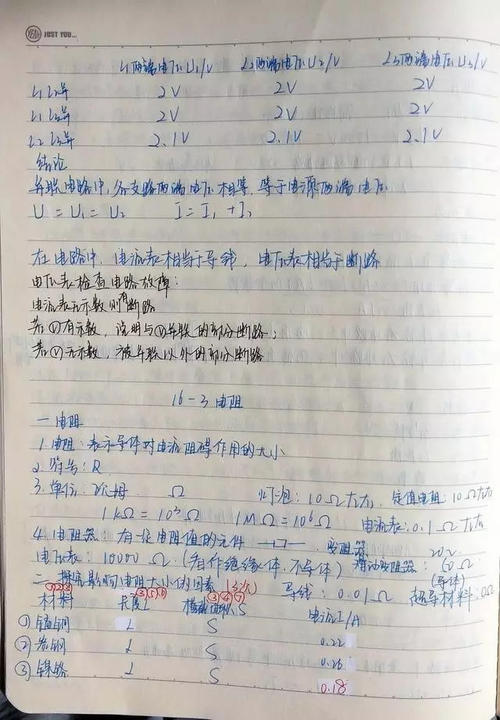 JUST YOU...
L₁两端电压U₁/V L₂两端电压U₂/V L₃两端电压U₃/V
L₁L₂并 2V 2V 2V
L₁L₃并 2V 2V 2V
L₂L₃并 2.1V 2.1V 2.1V
结论
并联电路中,各支路两端电压相等,等于电源两端电压
U = U₁ = U₂ I = I₁ + I₂
在电路中,电流表相当于导线,电压表相当于断路
电压表检查电路故障:
电流表无示数则有断路
若Ⓥ有示数,说明与Ⓥ并联的部分断路;
若Ⓥ无示数,被并联以外的部分断路
16-3 电阻
一 电阻
1. 电阻:表示导体对电流阻碍作用的大小
2. 符号:R
3. 单位:欧姆 Ω 灯泡:10Ω左右 定值电阻:10Ω左右
1kΩ = 10³Ω 1MΩ = 10⁶Ω 电流表:0.1Ω左右
4. 电阻器:有一定电阻值的元件 变阻器 20Ω
电压表:10000Ω(看作绝缘体,不导体) 滑动变阻器:50Ω
二 探究影响电阻大小的因素 (3次) 导线:0.01Ω (导体) 超导材料:0Ω
①②③ ③⑤⑥ ③④⑦
材料 长度L 横截面积S 电流I/A
① 锰铜 L S
② 康铜 L S 0.22
③ 镍铬 L S 0.26
0.18